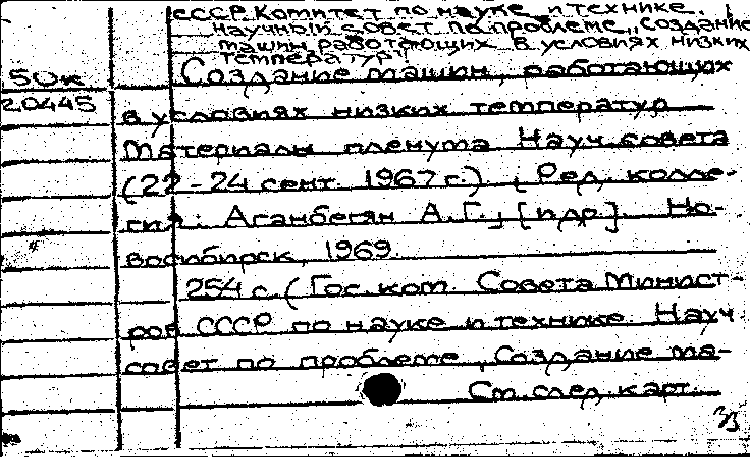 СССР. Комитет по науке и технике.
Научный совет по проблеме „Создание
машин, работающих в условиях низких
температур"
50к Создание машин, работающих
20445 в условиях низких температур
Материалы пленума Науч. совета
(22-24 сент. 1967 г.) [Ред. колле-
гия: Аганбегян А.Г., [и др]. Но-
восибирск, 1969.
254 с. (Гос. ком. Совета Минист-
ров СССР по науке и технике. Науч.
совет по проблеме „Создание ма-
См. след. карт.